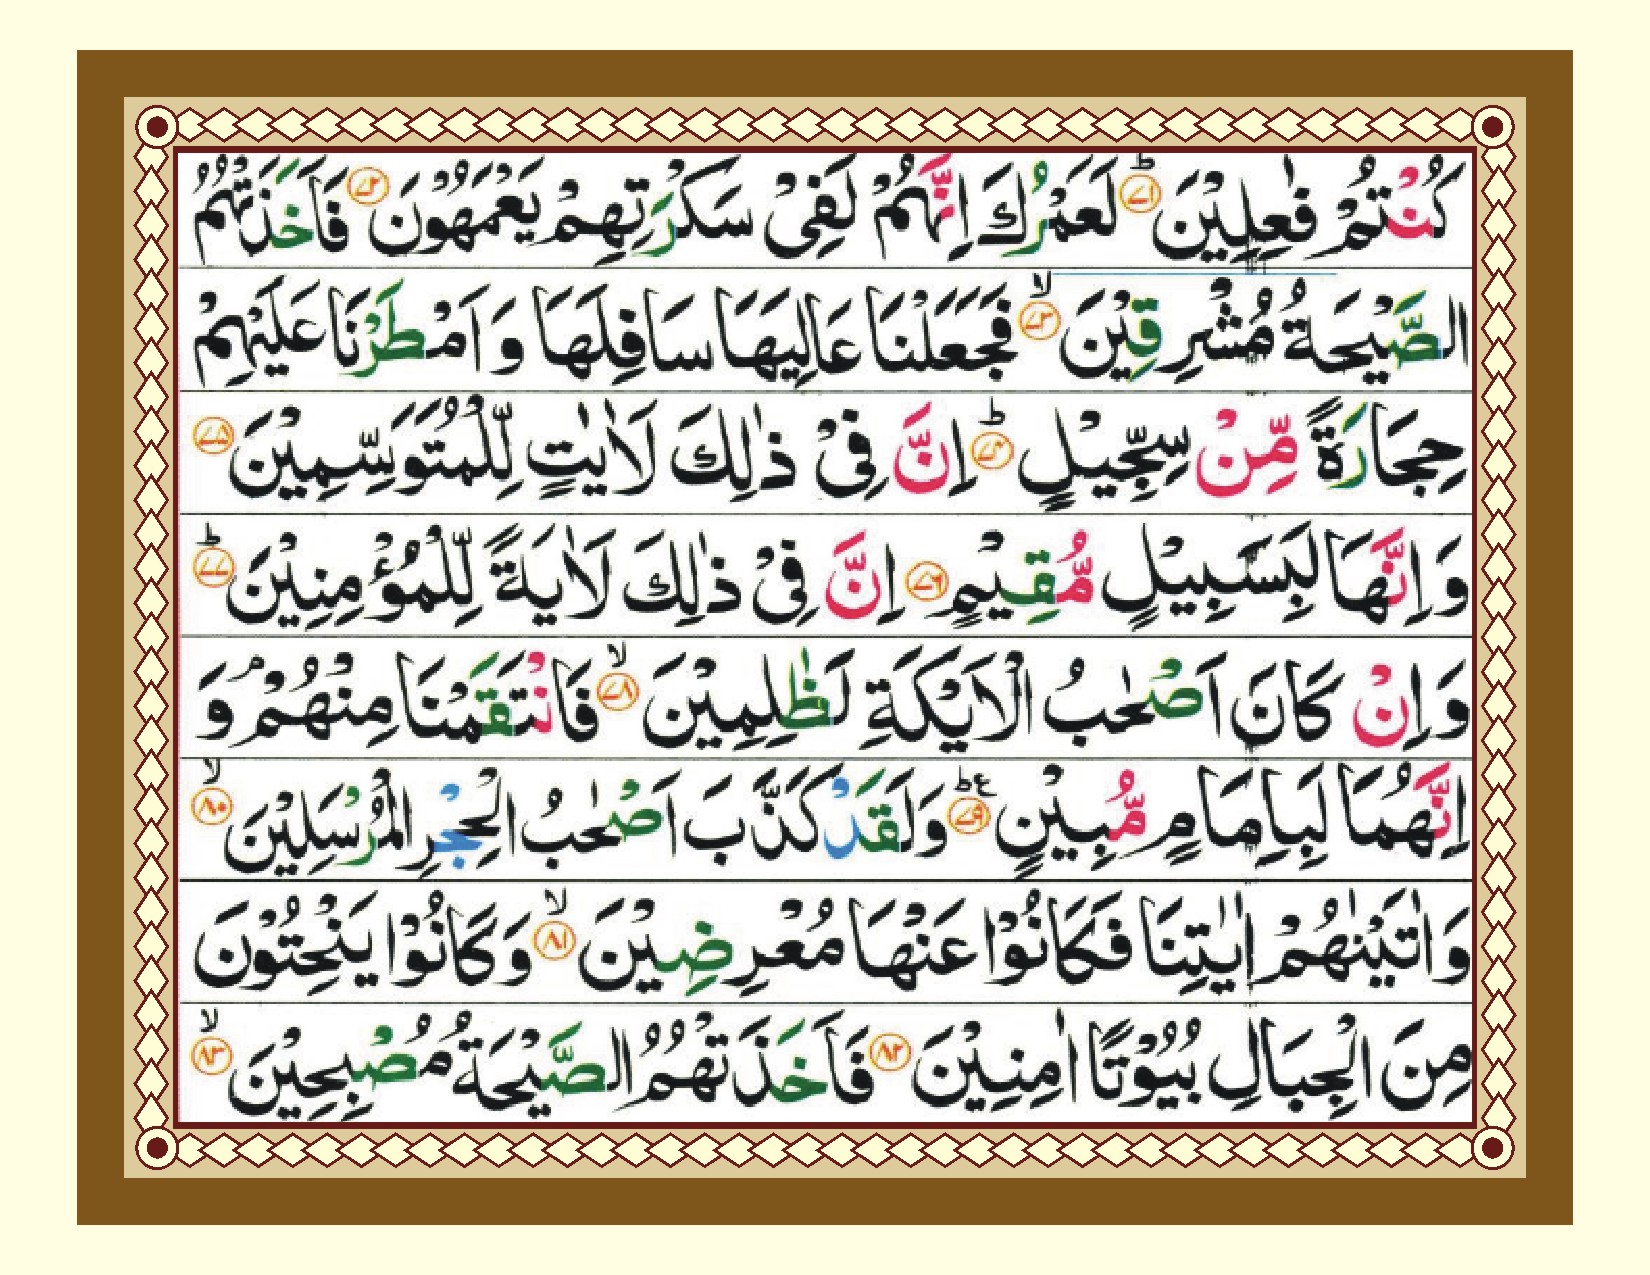 كُنْتُمْ فٰعِلِيْنَ ؕ‏﴿۷۱﴾ لَعَمْرُكَ اِنَّهُمْ لَفِىْ سَكْرَتِهِمْ يَعْمَهُوْنَ ﴿۷۲﴾ فَاَخَذَتْهُمُ
الصَّيْحَةُ مُشْرِقِيْنَ ۙ﴿۷۳﴾ فَجَعَلْنَا عَالِيَهَا سَافِلَهَا وَ اَمْطَرْنَا عَلَيْهِمْ
حِجَارَةً مِّنْ سِجِّيْلٍ ؕ﴿۷۴﴾ اِنَّ فِىْ ذٰلِكَ لَاٰيٰتٍ لِّلْمُتَوَسِّمِيْنَ ﴿۷۵﴾
وَ اِنَّهَا لَبِسَبِيْلٍ مُّقِيْمٍ ﴿۷۶﴾ اِنَّ فِىْ ذٰلِكَ لَاٰيَةً لِّلْمُؤْمِنِيْنَ ؕ﴿۷۷﴾
وَ اِنْ كَانَ اَصْحٰبُ الْاَيْكَةِ لَظٰلِمِيْنَ ۙ﴿۷۸﴾ فَانْتَقَمْنَا مِنْهُمْ ۘ وَ
اِنَّهُمَا لَبِاِمَامٍ مُّبِيْنٍ ؕع﴿۷۹﴾ وَلَقَدْ كَذَّبَ اَصْحٰبُ الْحِجْرِ الْمُرْسَلِيْنَ ۙ﴿۸۰﴾
وَ اٰتَيْنٰهُمْ اٰيٰتِنَا فَكَانُوْا عَنْهَا مُعْرِضِيْنَ ۙ﴿۸۱﴾ وَكَانُوْا يَنْحِتُوْنَ
مِنَ الْجِبَالِ بُيُوْتًا اٰمِنِيْنَ ﴿۸۲﴾ فَاَخَذَتْهُمُ الصَّيْحَةُ مُصْبِحِيْنَ ۙ﴿۸۳﴾